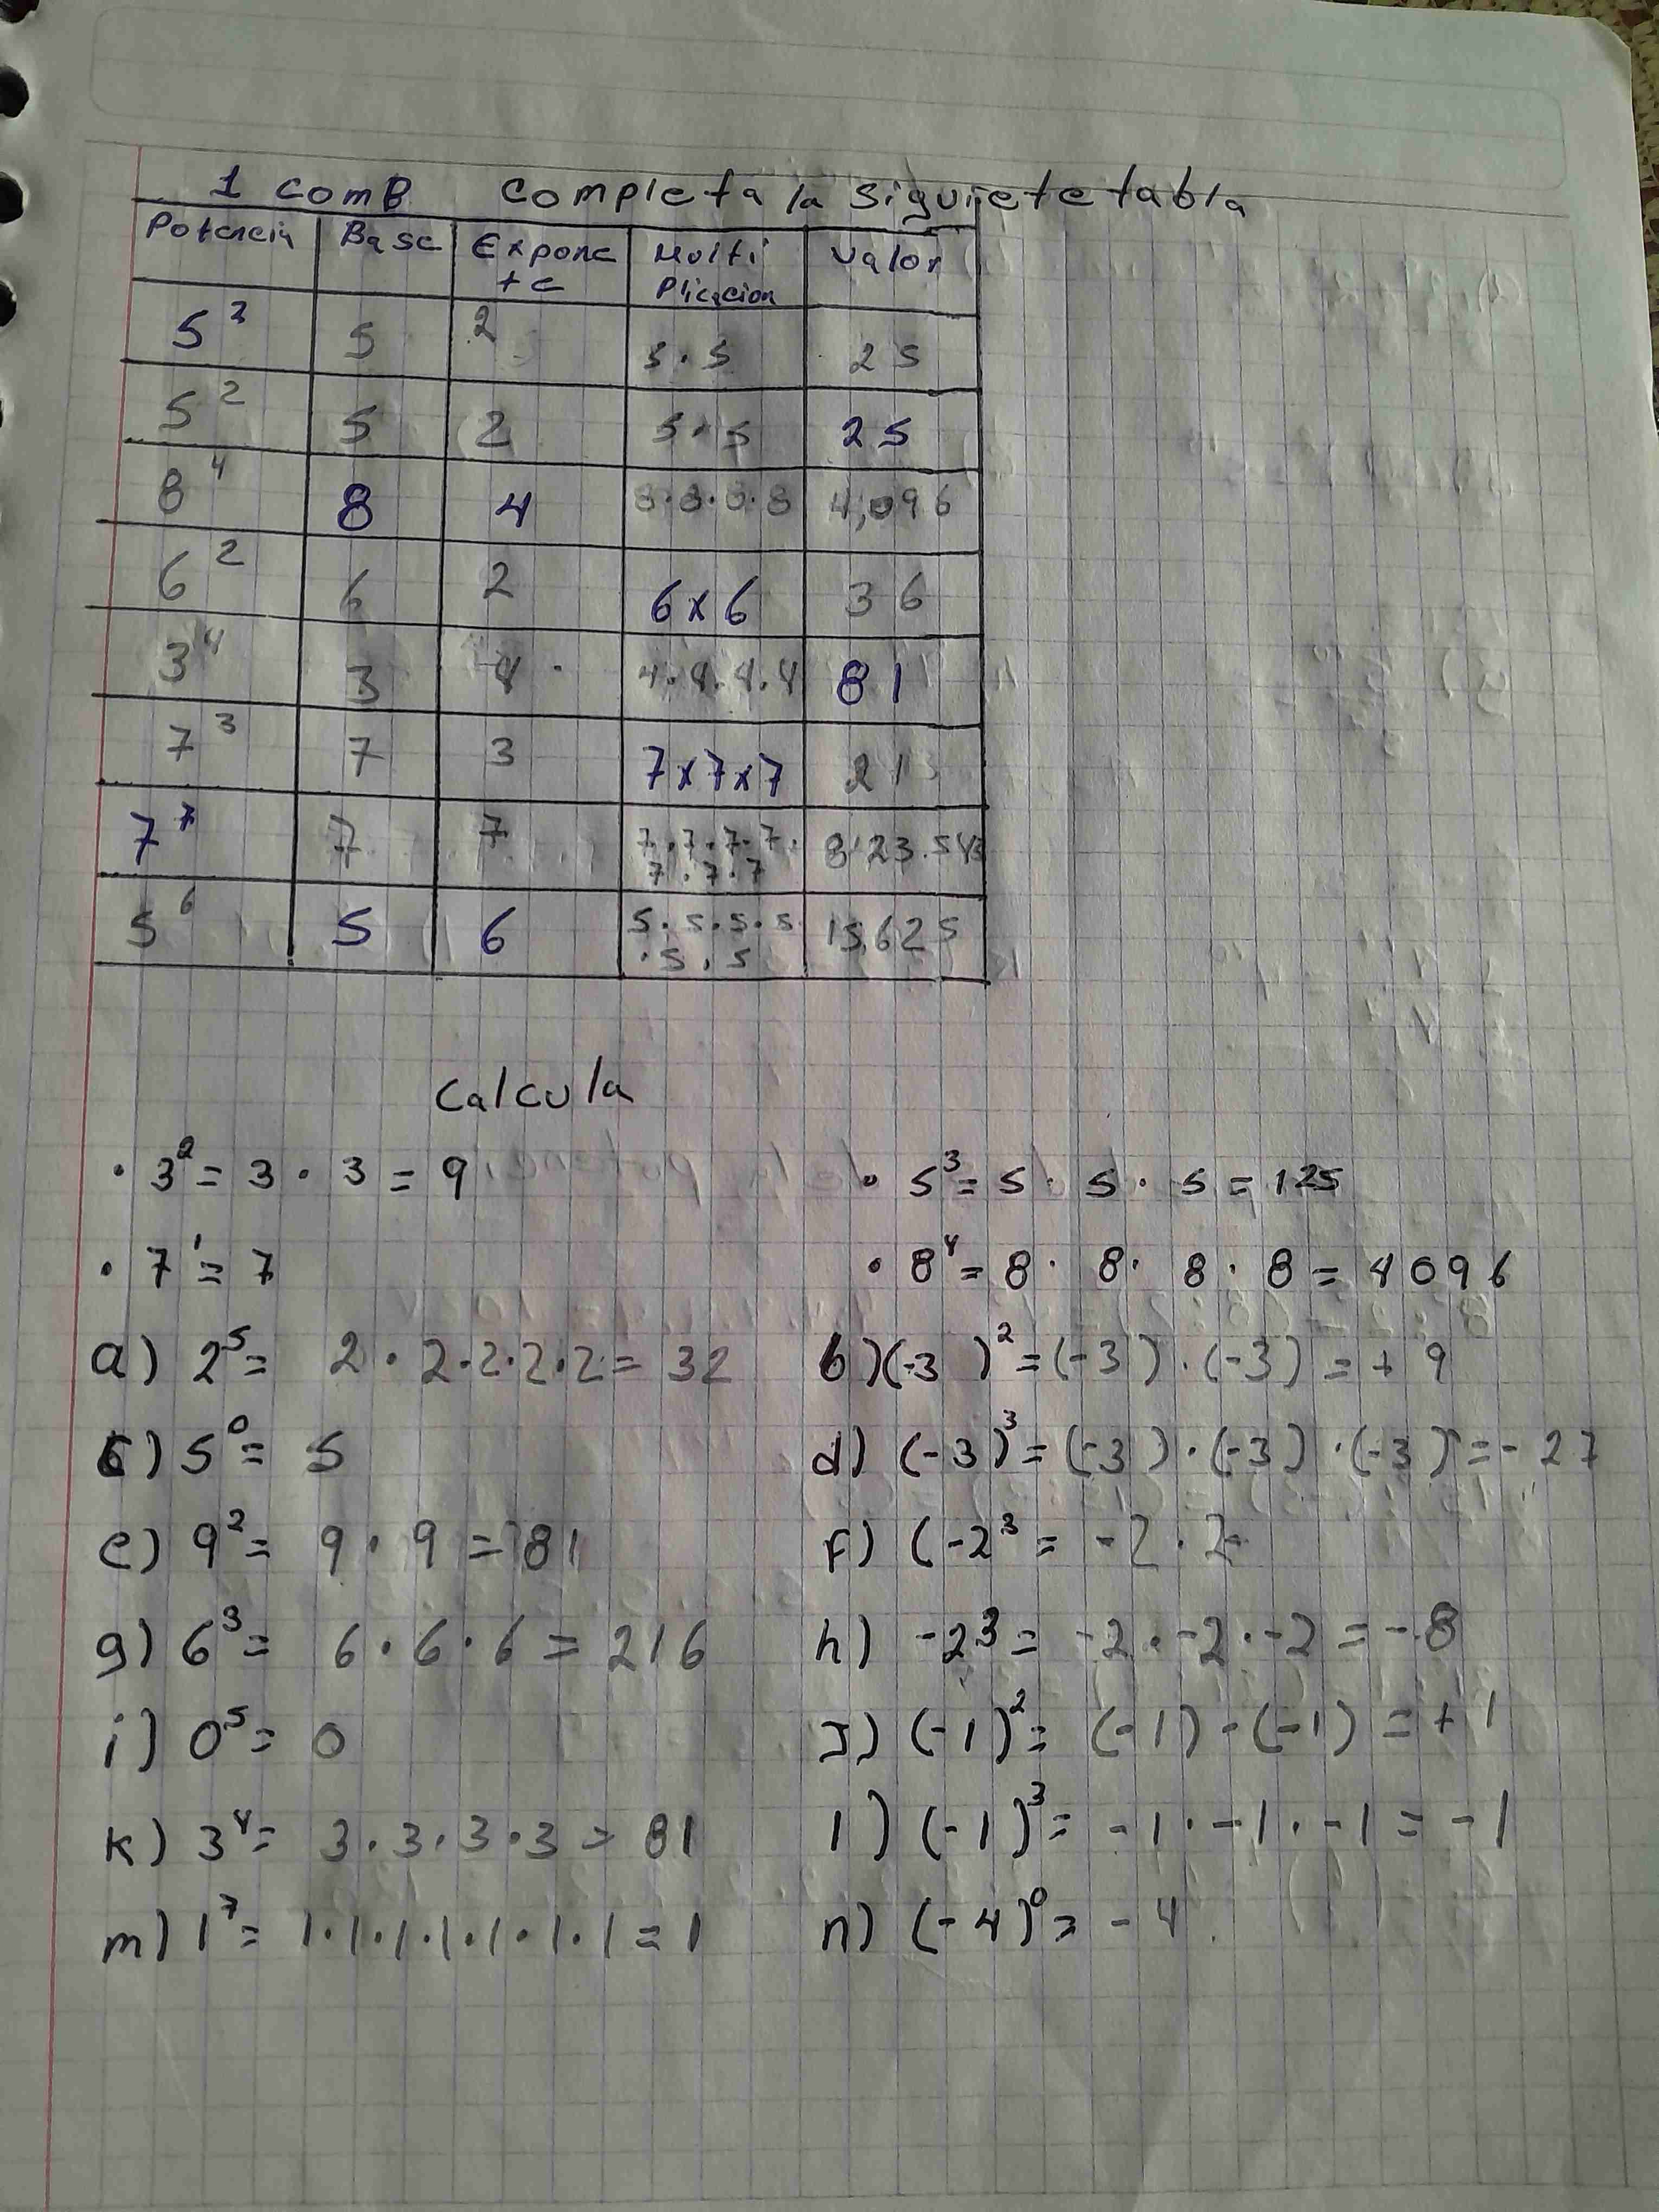 1 comB completa la siguiete tabla
Potencia Base Expone Multi Valor
te plicacion
5³ 5 2 5·5 25
5² 5 2 5·5 25
8⁴ 8 4 8·8·8·8 4,096
6² 6 2 6x6 36
3⁴ 3 4 4·4·4·4 81
7³ 7 3 7x7x7 21
7⁷ 7 7 7·7·7·7· 8'23.543
7·7·7
5⁶ 5 6 5·5·5·5 15,625
·5·5
calcula
· 3² = 3 · 3 = 9 · 5³ = 5 · 5 · 5 = 125
· 7¹ = 7 · 8⁴ = 8 · 8 · 8 · 8 = 4096
a) 2⁵ = 2 · 2·2·2·2 = 32 b) (-3 )² = (-3) · (-3) = + 9
c) 5⁰ = 5 d) (-3)³ = (-3) · (-3) · (-3) = - 27
e) 9² = 9 · 9 = 81 f) (-2³ = -2 · 2
g) 6³ = 6 · 6 · 6 = 216 h) -2³ = -2 · -2 · -2 = -8
i) 0⁵ = 0 J) (-1)² = (-1) - (-1) = + 1
k) 3⁴ = 3 · 3 · 3 · 3 = 81 l) (-1)³ = -1 · -1 · -1 = -1
m) 1⁷ = 1·1·1·1·1·1·1 = 1 n) (-4)⁰ = - 4